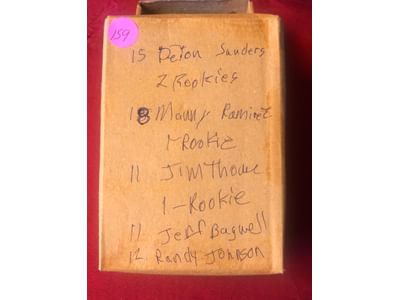 159
15 Deion Sanders
2 Rookies
18 Manny Ramirez
1 Rookie
11 Jim Thome
1-Rookie
11 Jeff Bagwell
12. Randy Johnson